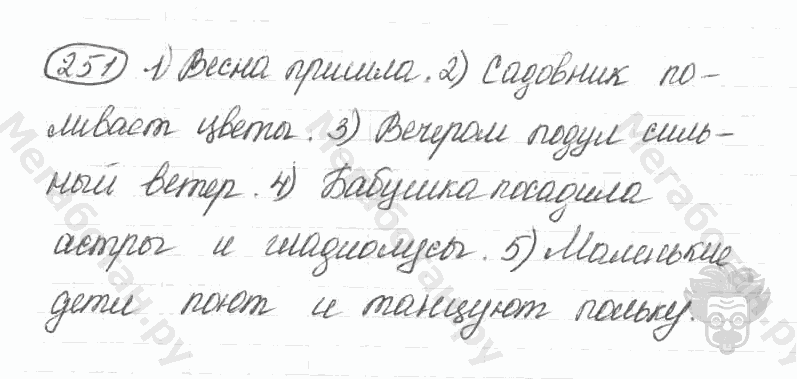 251 1) Весна пришла. 2) Садовник по-
ливает цветы. 3) Вечером подул силь-
ный ветер. 4) Бабушка посадила
астры и гладиолусы. 5) Маленькие
дети поют и танцуют польку.
Мегаботан.ру
Мегаботан.ру
Мегаботан.ру